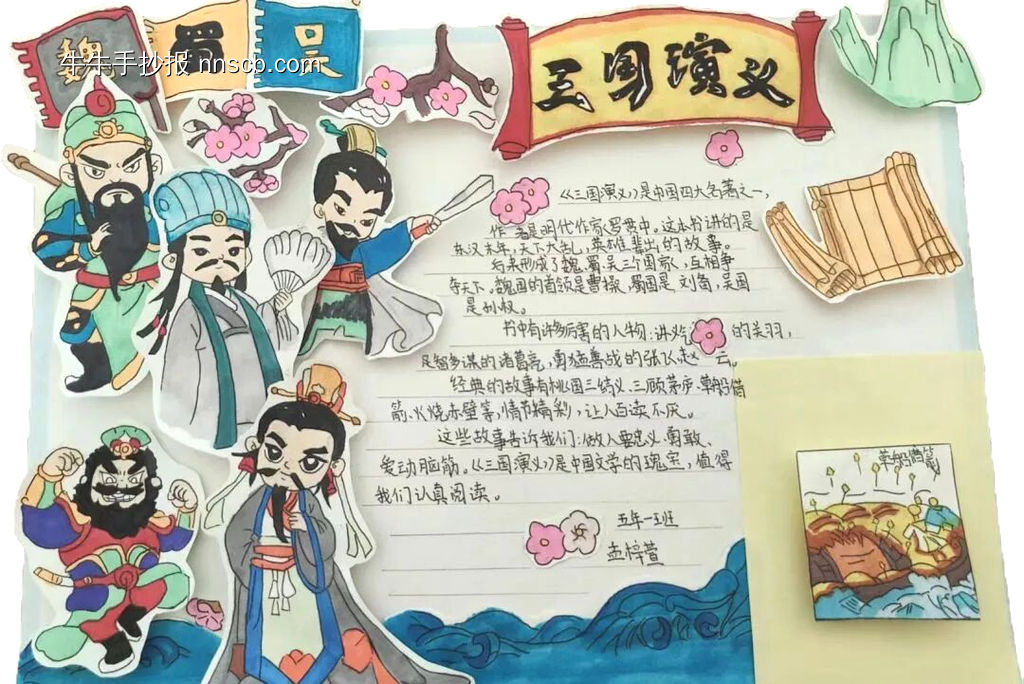 魏
蜀
吴
牛牛手抄报 nnscb.com
三国演义
《三国演义》是中国四大名著之一，
作者是明代作家罗贯中。这本书讲的是
东汉末年，天下大乱，英雄辈出的故事。
后来形成了魏、蜀、吴三个国家，互相争
夺天下。魏国的首领是曹操，蜀国是刘备，吴国
是孙权。
书中有许多厉害的人物：讲义气的关羽，
足智多谋的诸葛亮，勇猛善战的张飞赵云。
经典的故事有桃园三结义、三顾茅庐、草船借
箭、火烧赤壁等，情节精彩，让人百读不厌。
这些故事告诉我们：做人要忠义、勇敢、
爱动脑筋。《三国演义》是中国文学的瑰宝，值得
我们认真阅读。
五年一班
孟梓萱
草船借箭